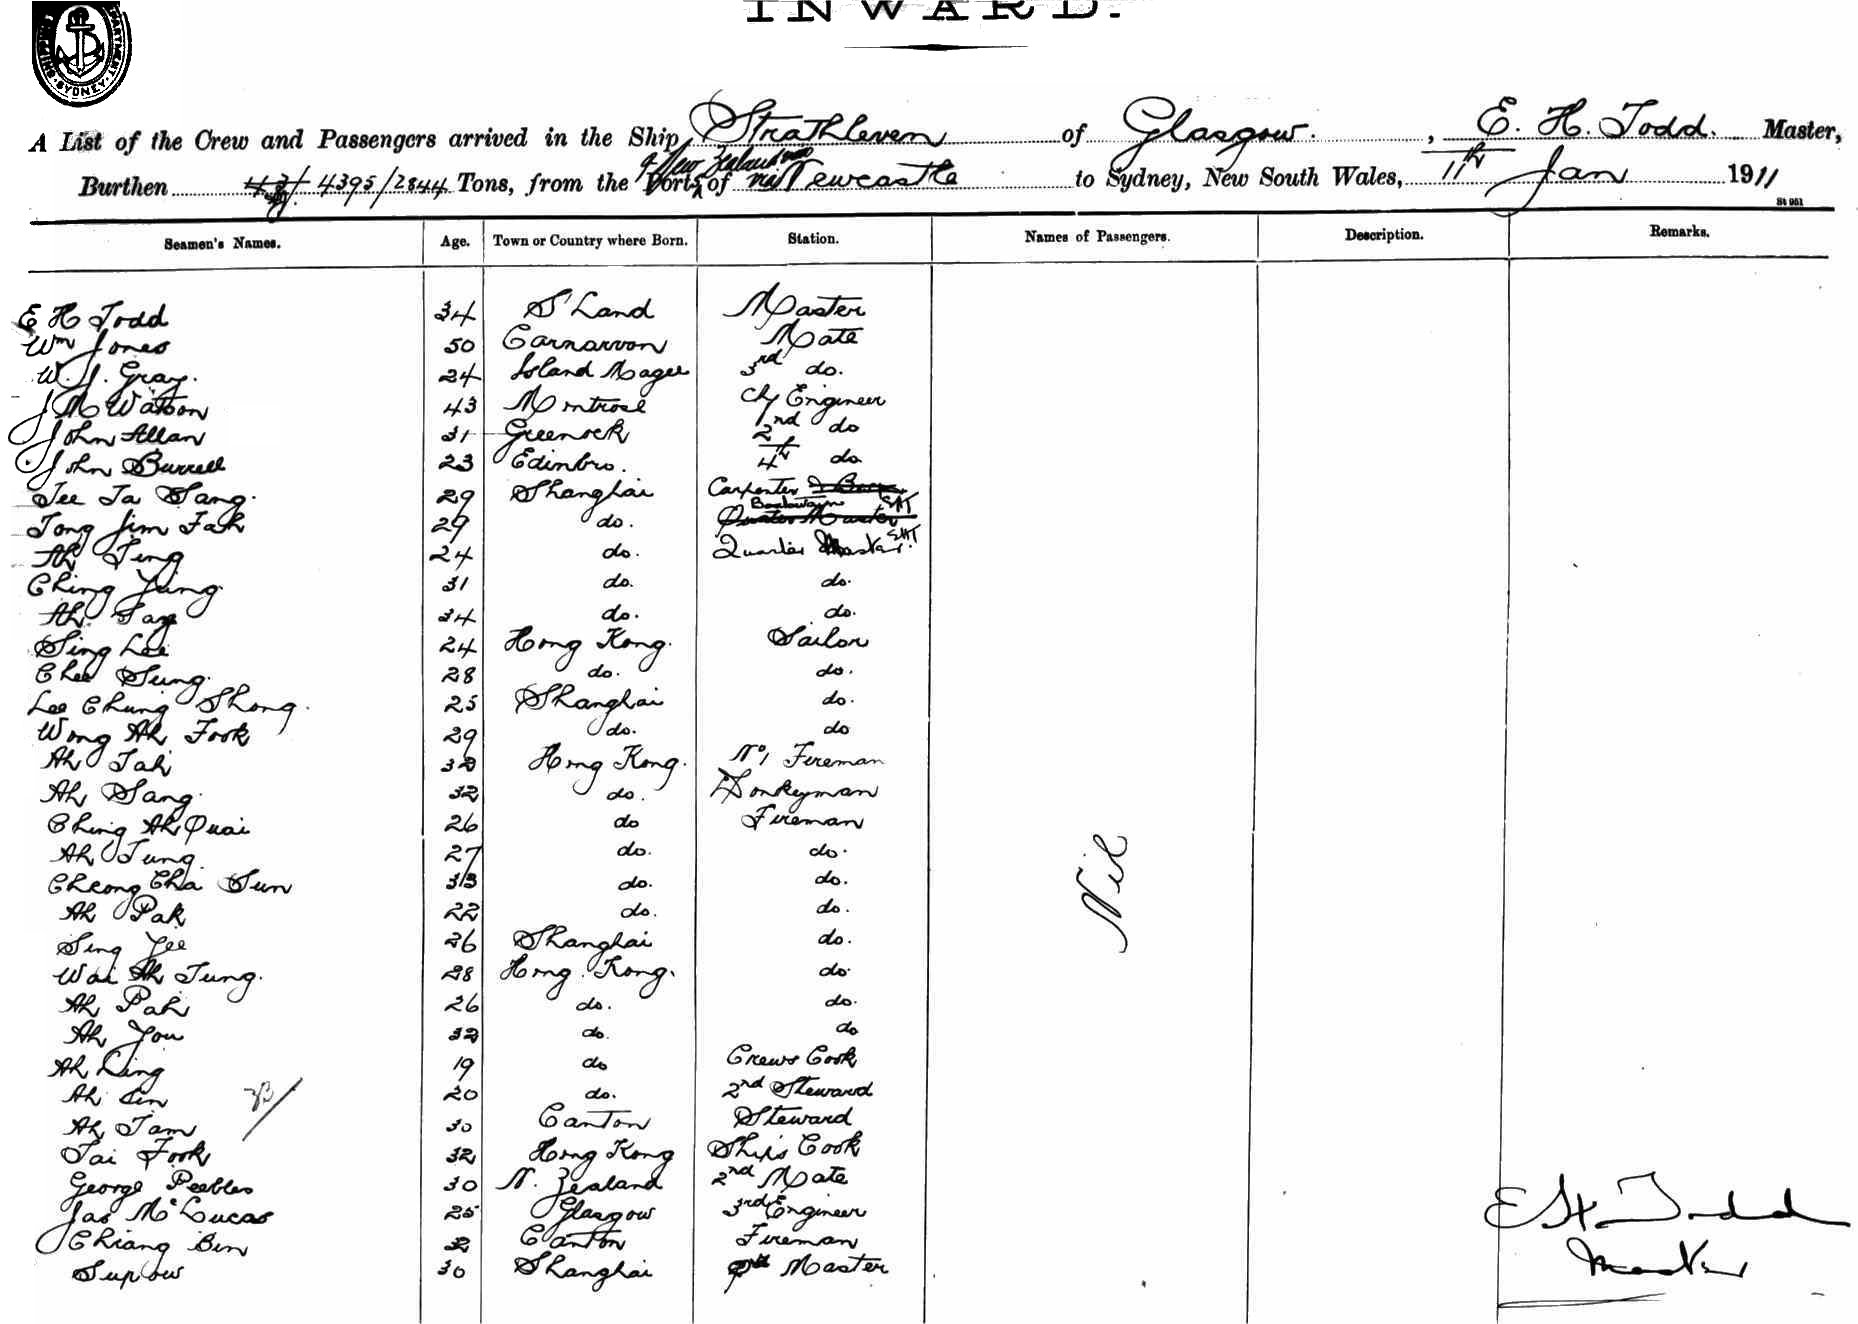 INWARD.
SHIPPING DEPARTMENT SYDNEY
A List of the Crew and Passengers arrived in the Ship Strathleven of Glasgow. , E. H. Todd. Master,
Burthen 4395/2844 Tons, from the Ports of New Zealand via Newcastle to Sydney, New South Wales, 11th Jan 1911
St 951
Seamen's Names. Age. Town or Country where Born. Station. Names of Passengers. Description. Remarks.
E H Todd 34 S'Land Master
Wm Jones 50 Carnarvon Mate
W. J. Gray. 24 Island Magee 3rd do.
J M Watson 43 Montrose Ch Engineer
John Allan 31 Greenock 2nd do
John Burrell 23 Edinbro. 4th do
Tee Ta Sang. 29 Shanghai Carpenter
Tong Jim Fah 29 do. Boatswain EHT
Ah Ting 24 do. Quarter Master. EHT
Ching Jung. 31 do. do.
Ah Say 34 do. do.
Sing Lee 24 Hong Kong. Sailor
Chee Sung. 28 do. do.
Lee Chung Shong. 25 Shanghai do.
Wong Ah Fook 29 do. do
Ah Tah 32 Hong Kong. No 1 Fireman
Ah Sang. 32 do. Donkeyman
Ching Ah Quai 26 do Fireman
Ah Tung. 27 do. do.
Cheong Cha Sun 33 do. do.
Ah Pak 22 do. do.
Sing Yee 26 Shanghai do.
Wai Ah Tung. 28 Hong Kong. do.
Ah Pah 26 do. do.
Ah You 32 do. do
Ah Ling 19 do Crews Cook
Ah Sin 20 do. 2nd Steward
Ah Tam 30 Canton Steward
Tai Fook 32 Hong Kong Ships Cook
George Peebles 30 N. Zealand 2nd Mate
Jas McLucas 25 Glasgow 3rd Engineer
Chiang Bin 32 Canton Fireman
Supow 30 Shanghai Master
Nil
33/
E H Todd
Master